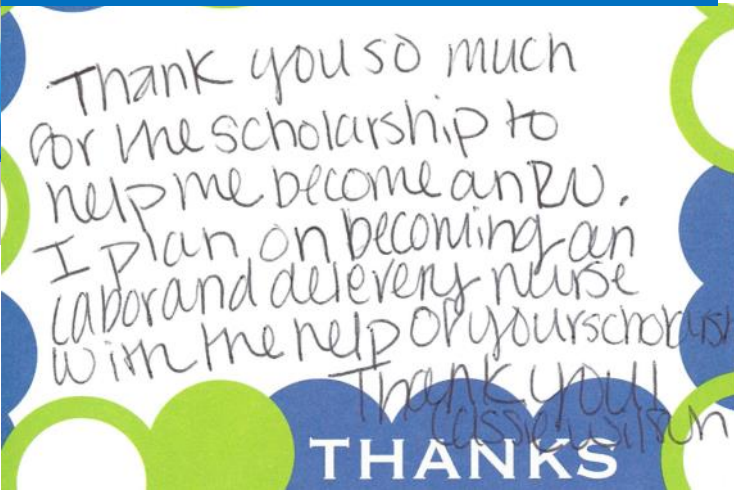 Thank you so much
for the scholarship to
help me become an RN.
I plan on becoming an
labor and delevery nurse
with the help of your scholarsh
Thank you!
Cassie Wilson
THANKS